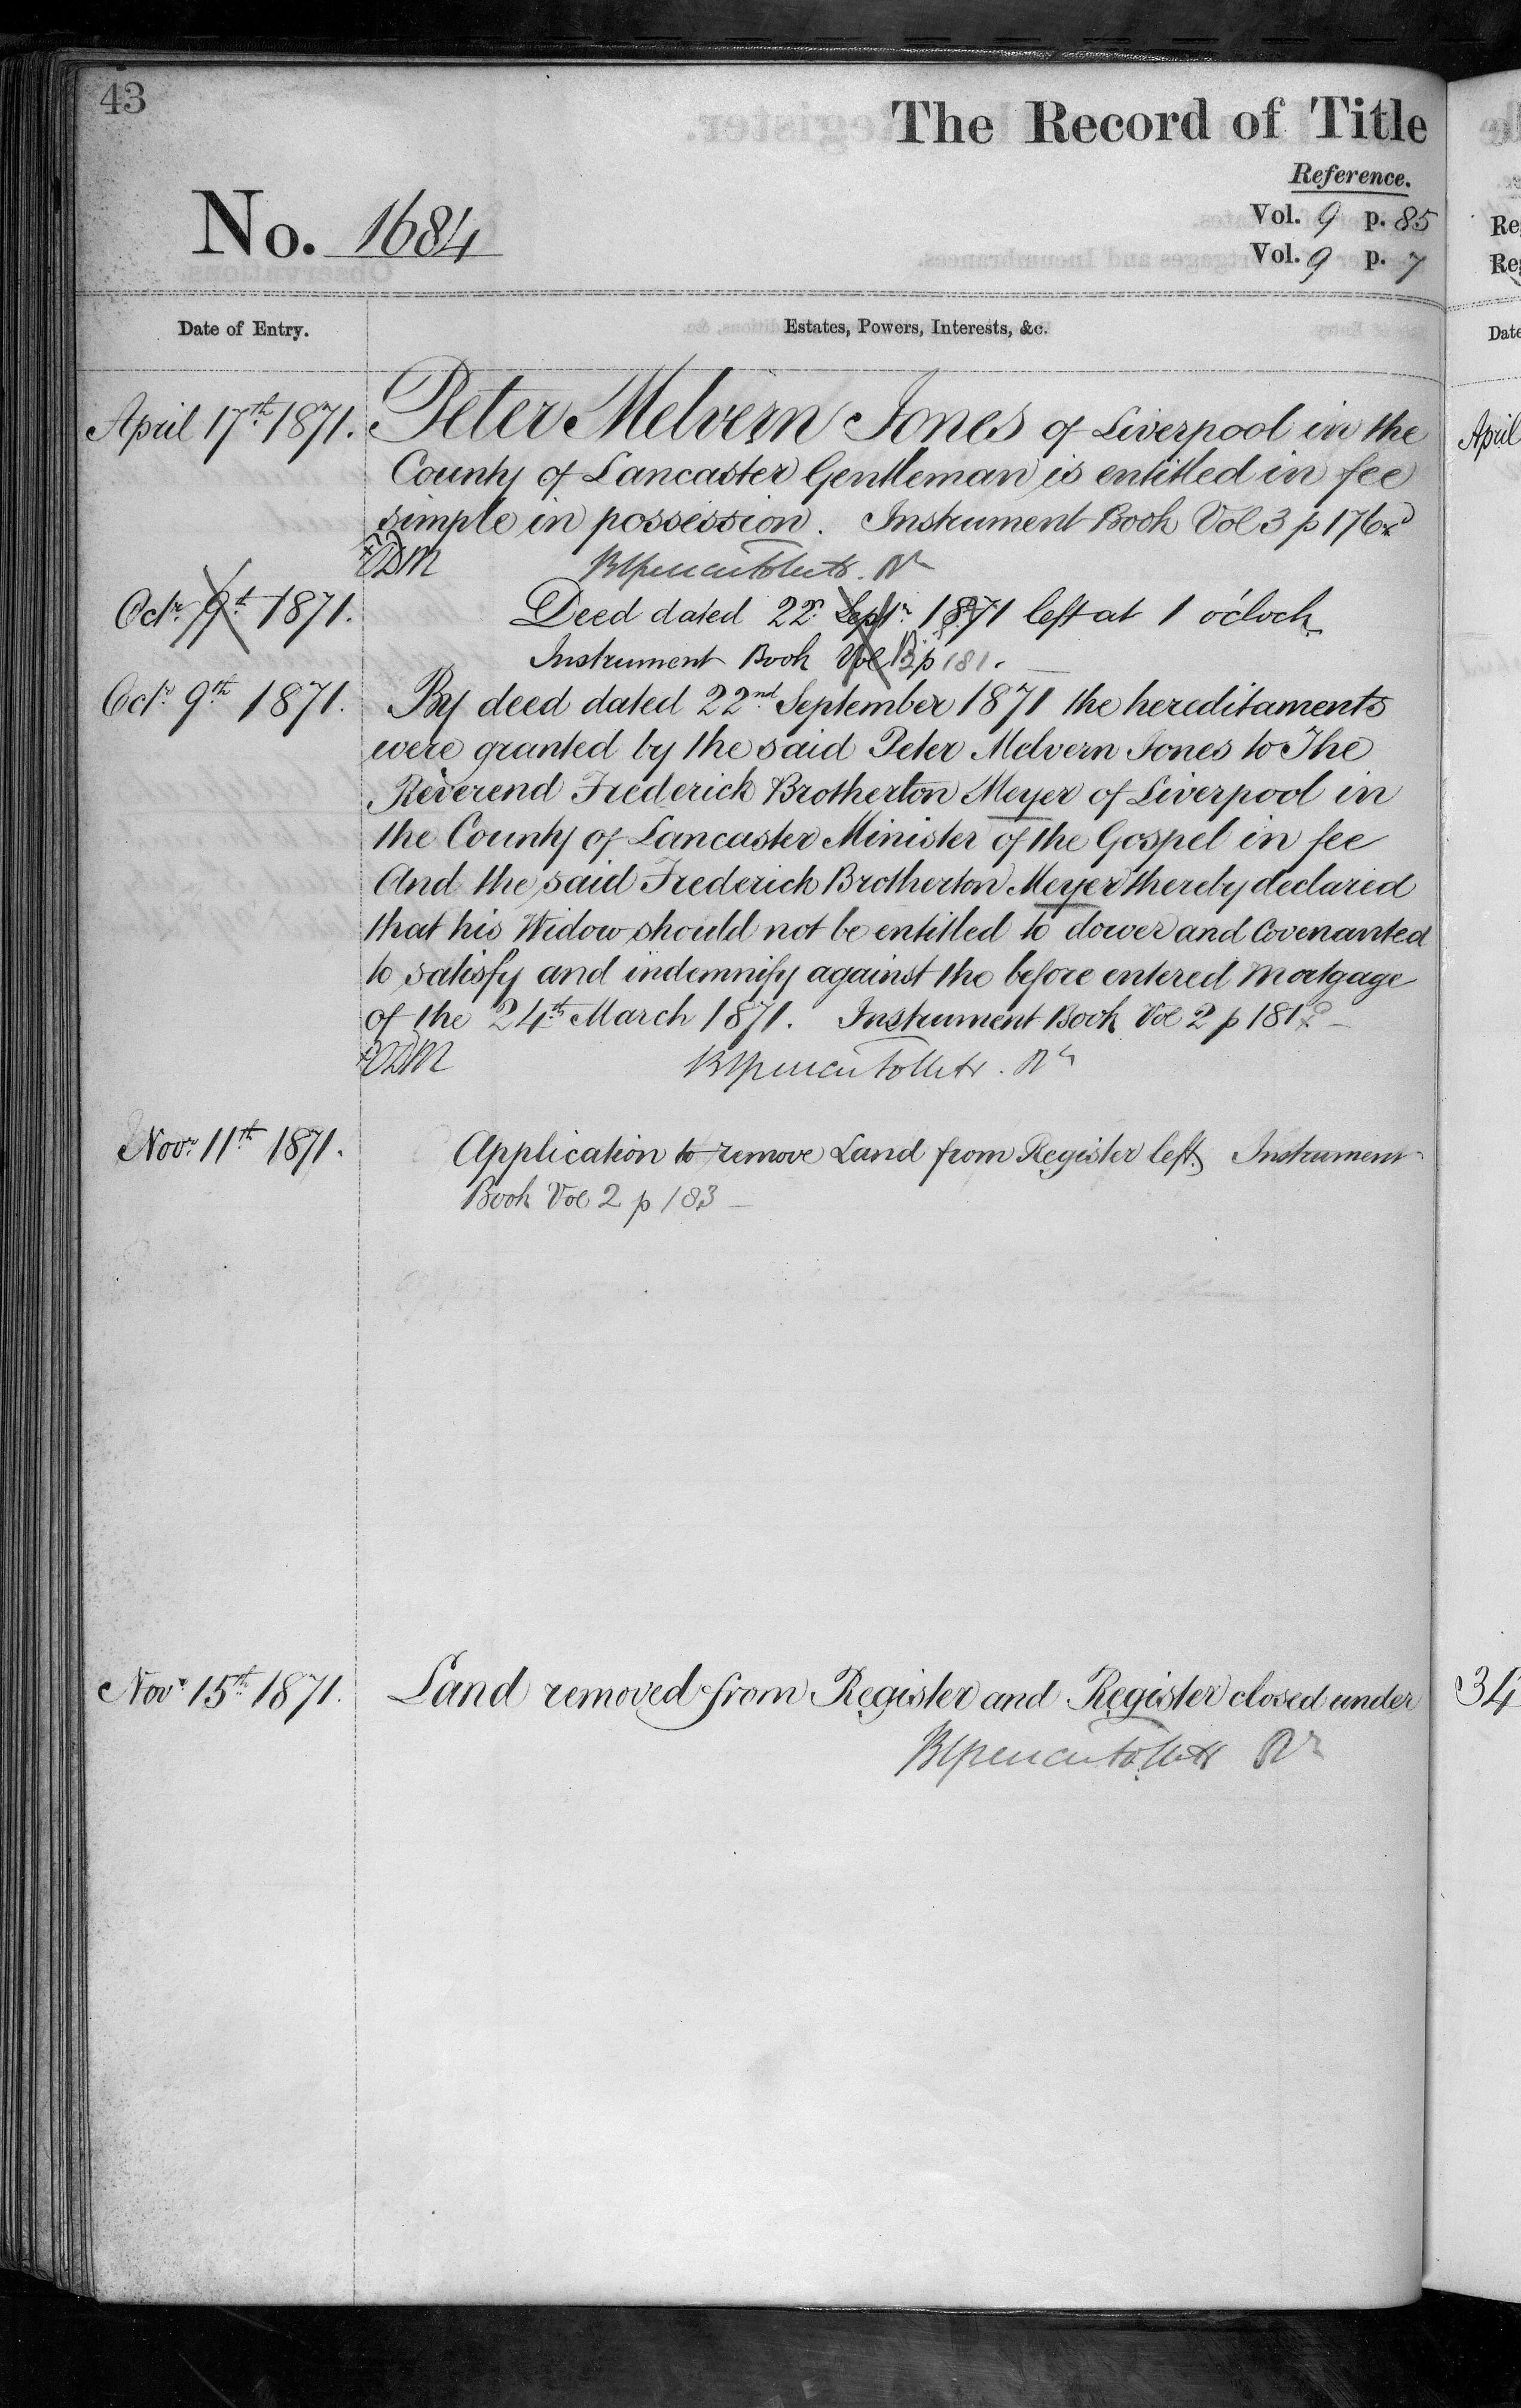 43
The Record of Title
Reference.
No. 1684
Vol. 9 p. 85
Vol. 9 p. 7
Date of Entry.
Estates, Powers, Interests, &c.
April 17th 1871.
Peter Melvern Jones of Liverpool in the
County of Lancaster Gentleman is entitled in fee
simple in possession. Instrument Book Vol 3 p 176
Octr 9th 1871.
Deed dated 22n Septr 1871 left at 1 o'clock
Instrument Book Vol 2 p 181.
Octr 9th 1871.
By deed dated 22nd September 1871 the hereditaments
were granted by the said Peter Melvern Jones to The
Reverend Frederick Brotherton Meyer of Liverpool in
the County of Lancaster Minister of the Gospel in fee
And the said Frederick Brotherton Meyer thereby declared
that his Widow should not be entitled to dower and Covenanted
to satisfy and indemnify against the before entered Mortgage
of the 24th March 1871. Instrument Book Vol 2 p 181
Novr 11th 1871.
Application to remove Land from Register left. Instrument
Book Vol 2 p 183
Novr 15th 1871.
Land removed from Register and Register closed under
Date
April
34